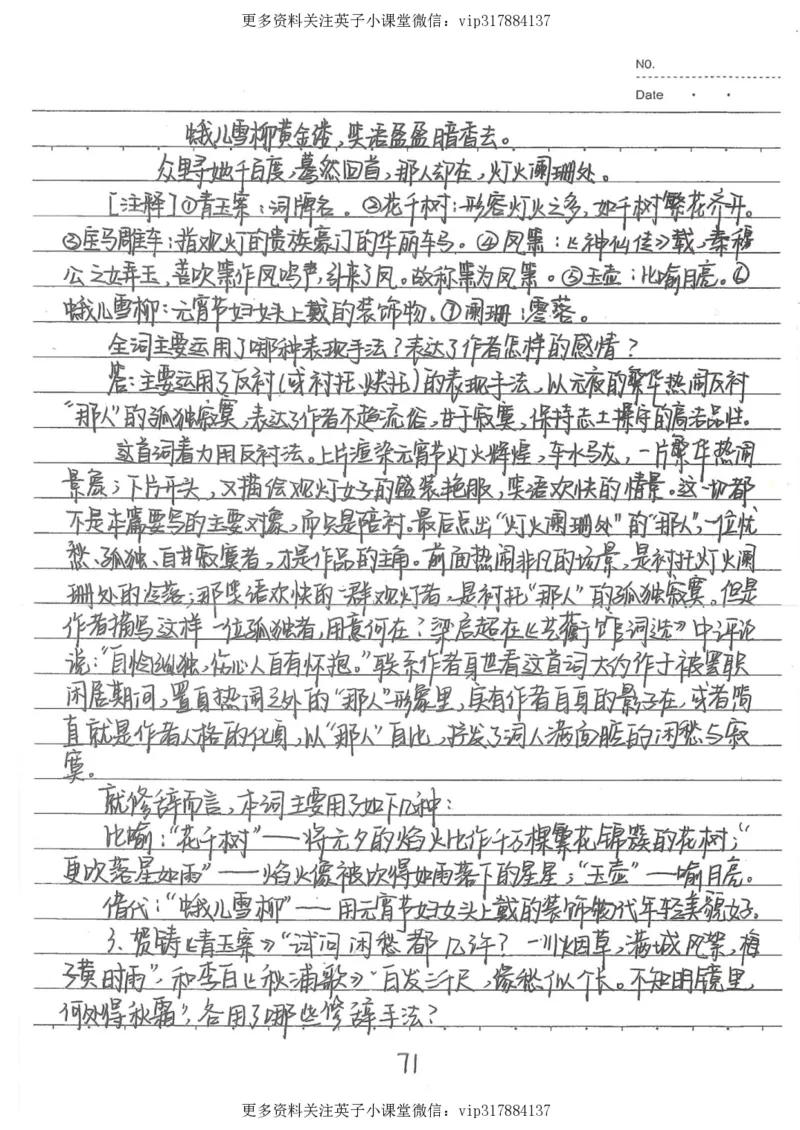 更多资料关注英子小课堂微信：vip317884137
NO.
Date
蛾儿雪柳黄金缕，笑语盈盈暗香去。
众里寻她千百度，蓦然回首，那人却在，灯火阑珊处。
[注释]①青玉案：词牌名。②花千树：形容灯火之多，如千树繁花齐开。
③宝马雕车：指观灯的贵族豪门的华丽车马。④凤箫：《神仙传》载，秦穆
公之女弄玉，善吹箫作凤鸣声，引来了凤。故称箫为凤箫。⑤玉壶：比喻月亮。⑥
蛾儿雪柳：元宵节妇女头上戴的装饰物。⑦阑珊：零落。
全词主要运用了哪种表现手法？表达了作者怎样的感情？
答：主要运用了反衬(或衬托、烘托)的表现手法，以元夜的繁华热闹反衬
“那人”的孤独寂寞，表达了作者不趋流俗，甘于寂寞，保持志士操守的高洁品性。
这首词着力用反衬法。上片渲染元宵节灯火辉煌，车水马龙，一片繁华热闹
景象；下片开头，又描绘观灯女子的盛装艳服，笑语欢快的情景。这一切都
不是本篇要写的主要对象，而只是陪衬。最后点出“灯火阑珊处”的“那人”，一位忧
愁、孤独、自甘寂寞者，才是作品的主角。前面热闹非凡的场景，是衬托灯火阑
珊处的冷落；那笑语欢快的一群观灯者，是衬托“那人”的孤独寂寞。但是
作者描写这样一位孤独者，用意何在？梁启超在《艺蘅馆词选》中评论
说：“自怜幽独，伤心人自有怀抱。”联系作者身世看这首词大约作于被罢职
闲居期间，置身热闹之外的“那人”形象里，实有作者自身的影子在，或者简
直就是作者人格的化身，以“那人”自比，抒发了词人满面脏的闲愁与寂
寞。
就修辞而言，本词主要用了如下几种：
比喻：“花千树”——将元夕的焰火比作千万棵繁花锦簇的花树；“
更吹落星如雨”——焰火像被吹得如雨落下的星星；“玉壶”—喻月亮。
借代：“蛾儿雪柳”——用元宵节妇女头上戴的装饰物代年轻美貌女子。
3、贺铸《青玉案》“试问闲愁都几许？一川烟草，满城风絮，梅
子黄时雨”，和李白《秋浦歌》“白发三千尺，缘愁似个长。不知明镜里，
何处得秋霜”，各用了哪些修辞手法？
71
更多资料关注英子小课堂微信：vip317884137